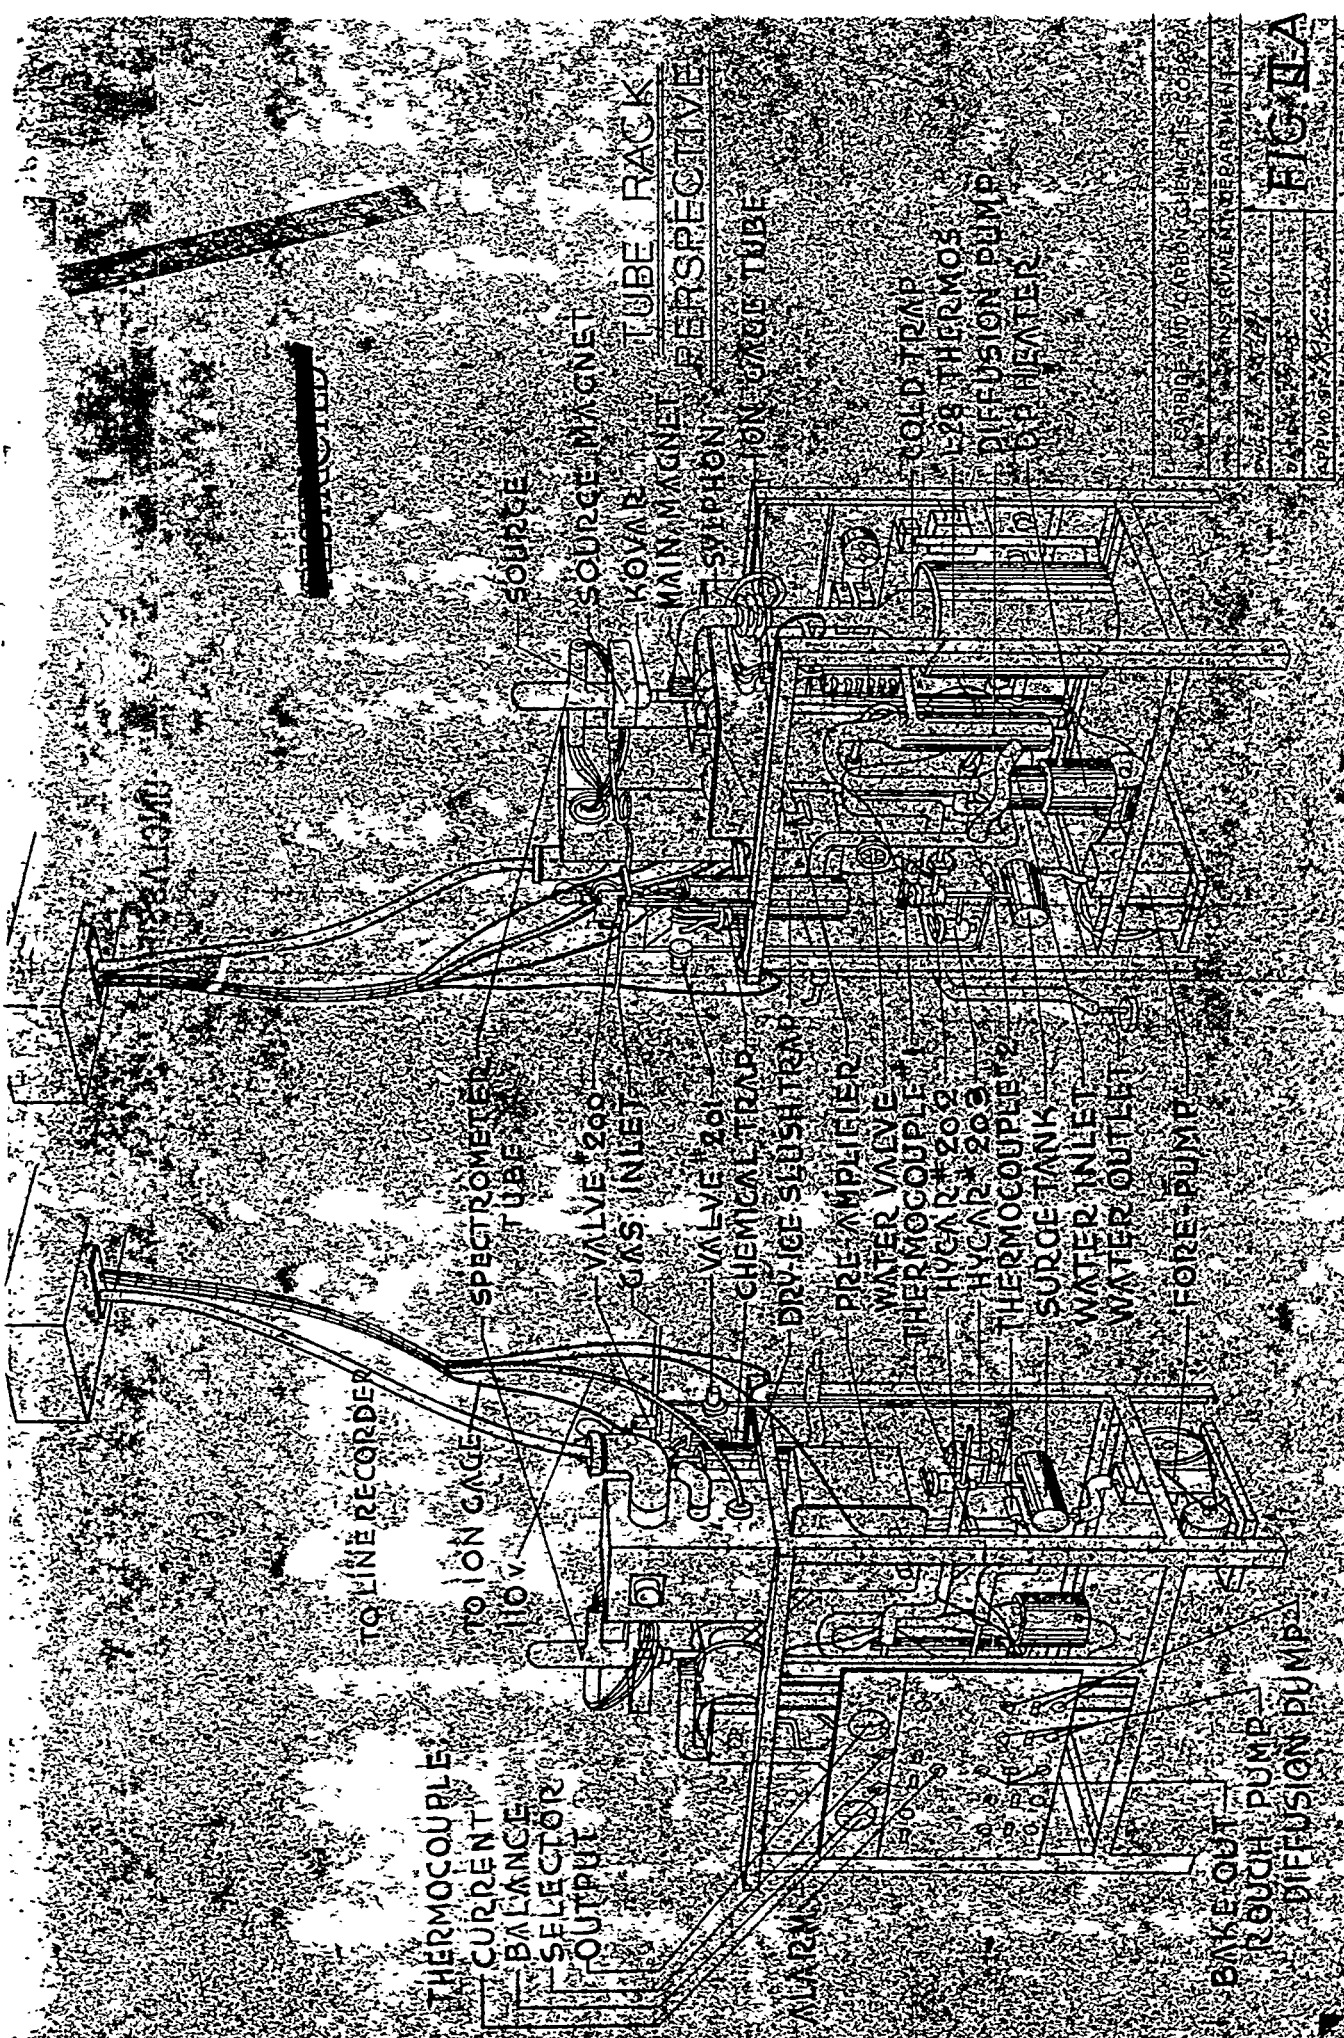 TO LINE RECORDER
TO ION GAGE
110 V.
THERMOCOUPLE
CURRENT
BALANCE
SELECTOR
OUTPUT
ALARM
BAKE OUT
ROUGH PUMP
DIFFUSION PUMP
SPECTROMETER
TUBE
VALVE #200
GAS INLET
VALVE #201
CHEMICAL TRAP
DRY-ICE SLUSH TRAP
PRE-AMPLIFIER
WATER VALVE
THERMOCOUPLE #1
HYCAR #202
HYCAR #203
THERMOCOUPLE #2
SURGE TANK
WATER INLET
WATER OUTLET
FORE-PUMP
SOURCE
SOURCE MAGNET
KOVAR
MAIN MAGNET
SYLPHON
ION GAGE TUBE
COLD TRAP
L-28 THERMOS
DIFFUSION PUMP
D.P. HEATER
TUBE RACK
PERSPECTIVE
CARBIDE AND CARBON CHEMICALS
INSTRUMENT DEPARTMENT
FIG. II-A